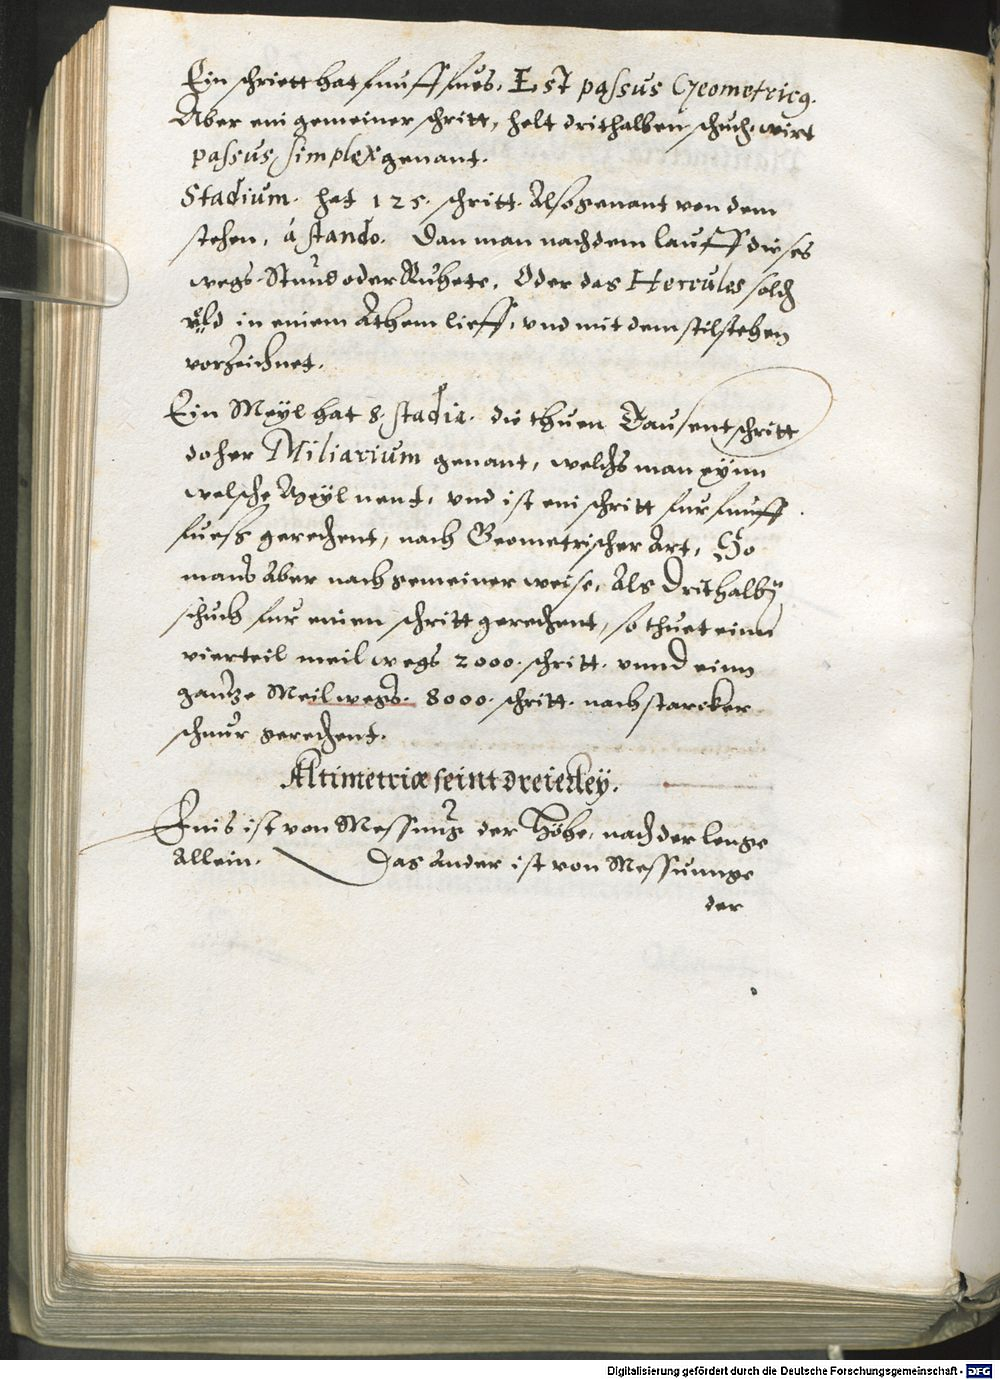 Ein schriett hat funff fues, Est passus Geometricus.
Aber ein gemeiner schritt, helt drithalben schuch, wirt
passus simplex genant.
Stadium. hat 125. schritt. Also genant von dem
stehen, á stando. Dan man nach dem lauff dieses
wegs Stund oder Ruhete, Oder das Hercules solch
in einem Athem lieff, vnd mit dem stilstehen
vorzeichnet.
Ein Meyl hat 8. stadia. die thuen Tausent schritt
doher Miliarium genant, welchs man eynn
welsche Meyl nent, vnd ist ein schritt fur funff
fuess gerechent, nach Geometrischer Art, So
mans Aber nach gemeiner weise, Als Drithalben
schuch fur einen schritt gerechent, so thuet einn
vierteil meil wegs 2000. schritt. vnnd einn
gantze Meil wegs. 8000. schritt. nach starcker
schnur gerechent.
Altimetriæ seint dreierley.
Eins ist von Messung der Höhe, nach der lenge
Allein. Das Ander ist von Messunge
der
Digitalisierung gefördert durch die Deutsche Forschungsgemeinschaft - DFG